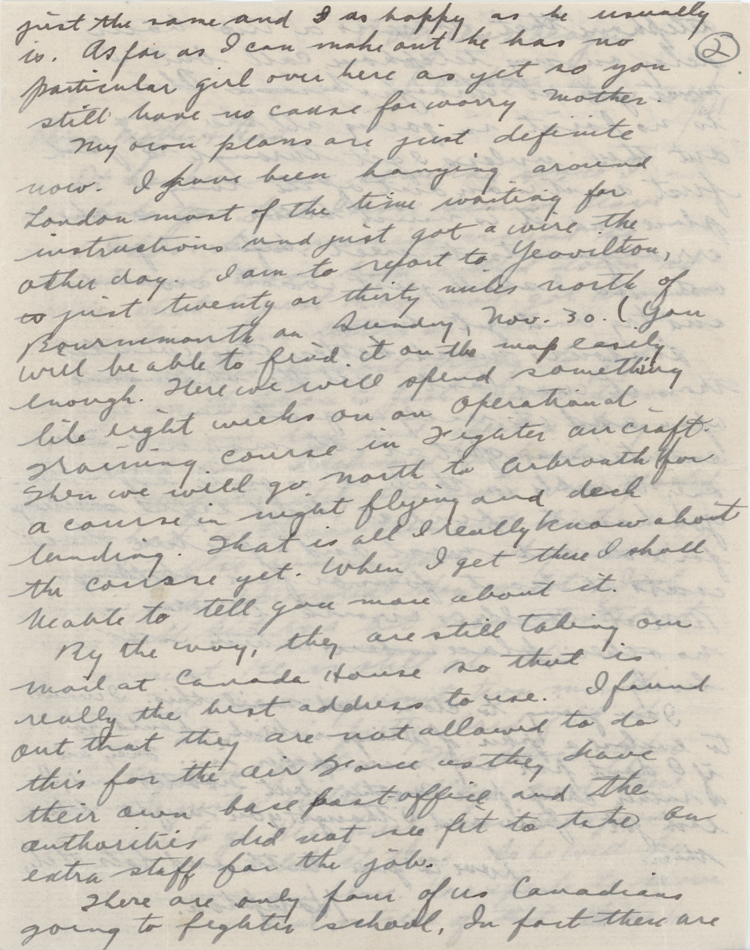 just the same and as happy as he usually
is. As far as I can make out he has no
②
particular girl over here as yet so you
still have no cause for worry Mother.
My own plans are just definite
now. I have been hanging around
London most of the time waiting for
instructions and just got a wire the
other day. I am to report to Yeovilton,
just twenty or thirty miles north of
Bournemouth on Sunday, Nov. 30. (You
will be able to find it on the map easily
enough. Here we will spend something
like eight weeks on an Operational
Training course in Fighter aircraft.
Then we will go north to Arbroath for
a course in night flying and deck
landing. That is all I really know about
the course yet. When I get there I shall
be able to tell you more about it.
By the way, they are still taking our
mail at Canada House so that is
really the best address to use. I found
out that they are not allowed to do
this for the Air Force as they have
their own base post office and the
authorities did not see fit to take on
extra staff for the job.
There are only four of us Canadians
going to fighter school. In fact there are